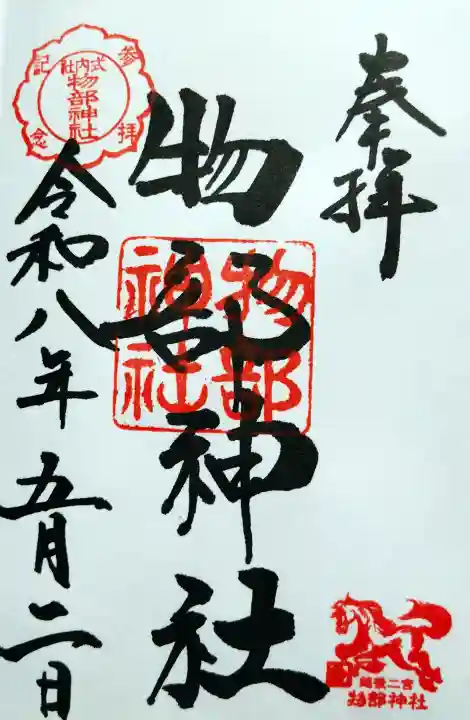 奉拝
物部神社
物部神社
令和八年五月二日
参拝記念
式内社
物部神社
越後二宮
物部神社